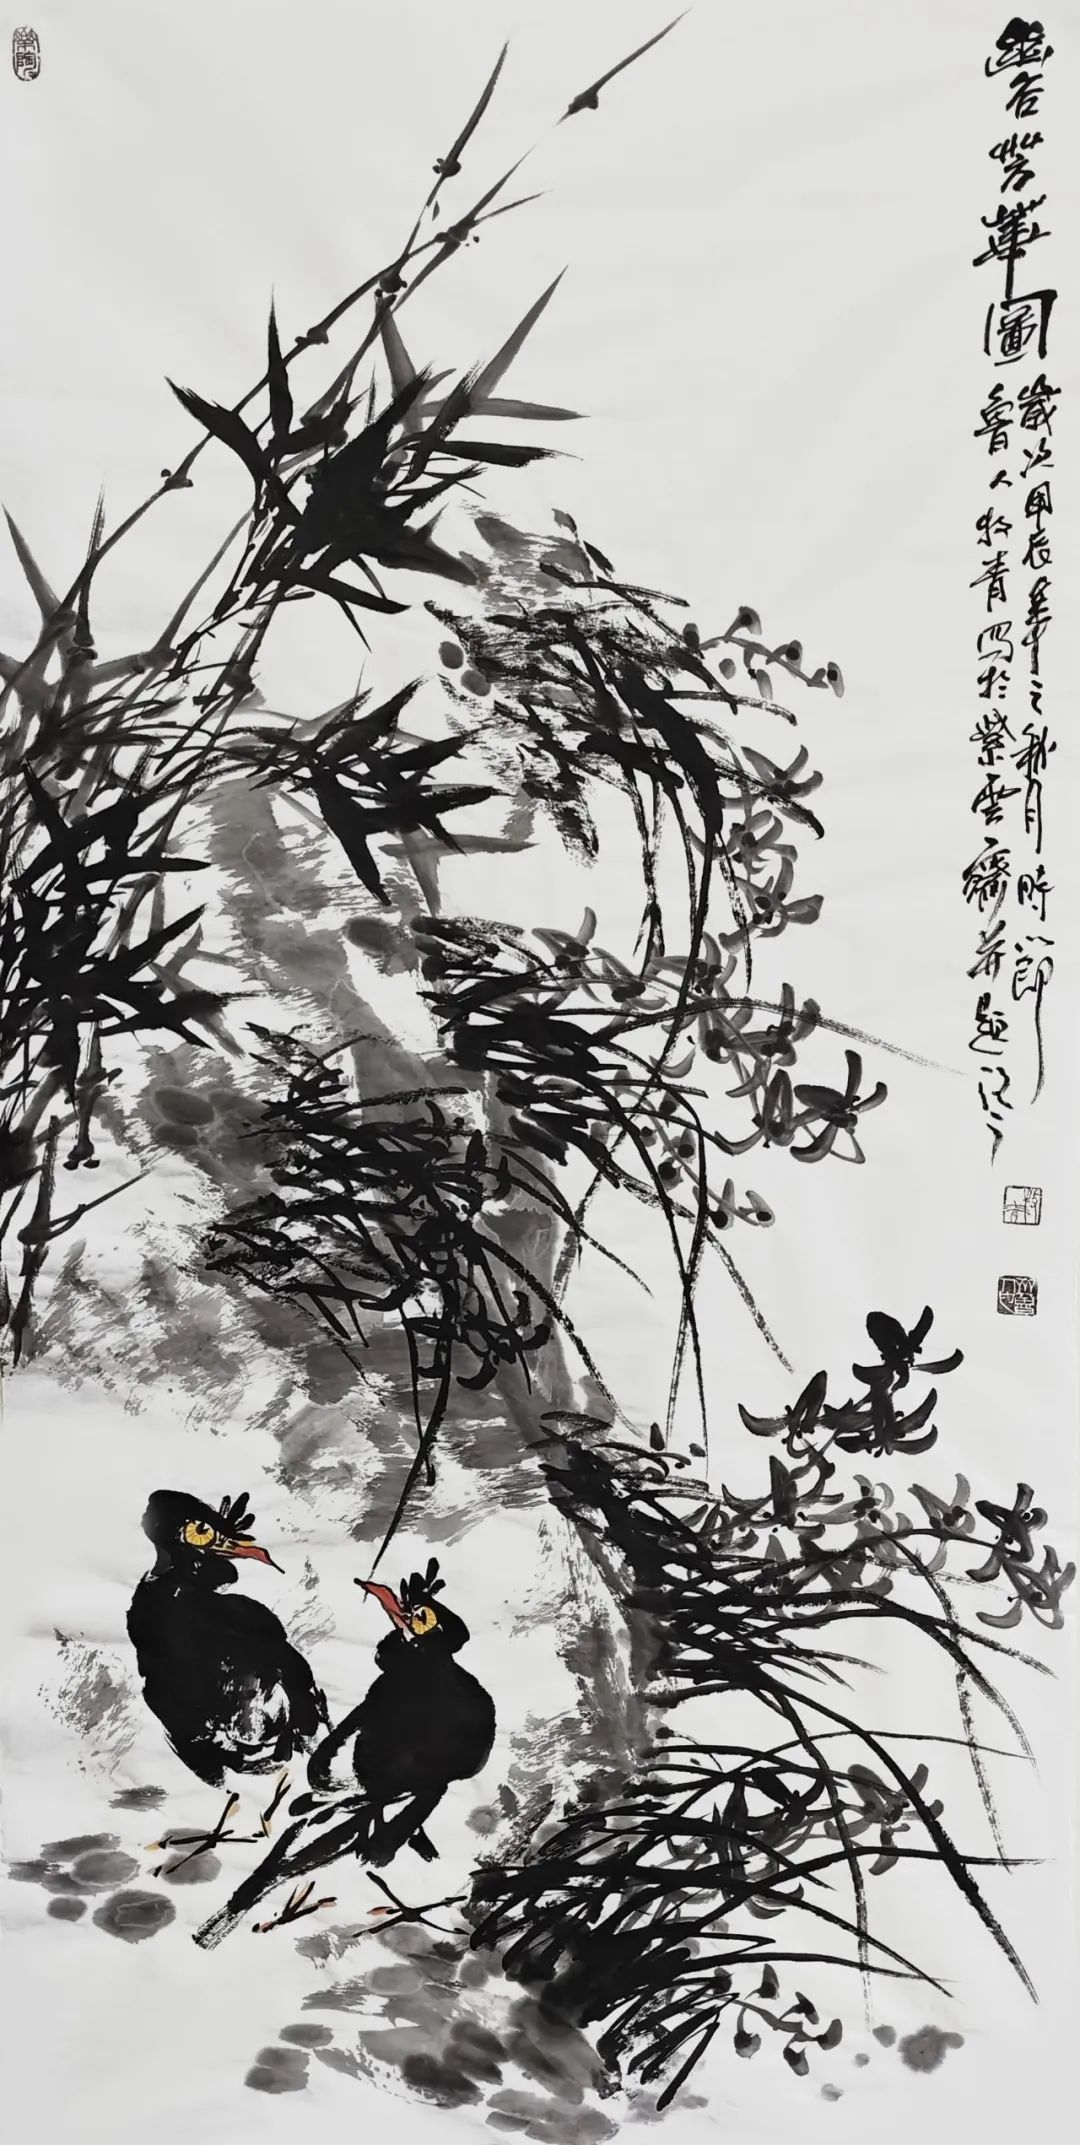 幽谷芳華圖
歲次甲辰年之秋月時節
魯人牧青寫於紫雲齋并題記之
樂陶